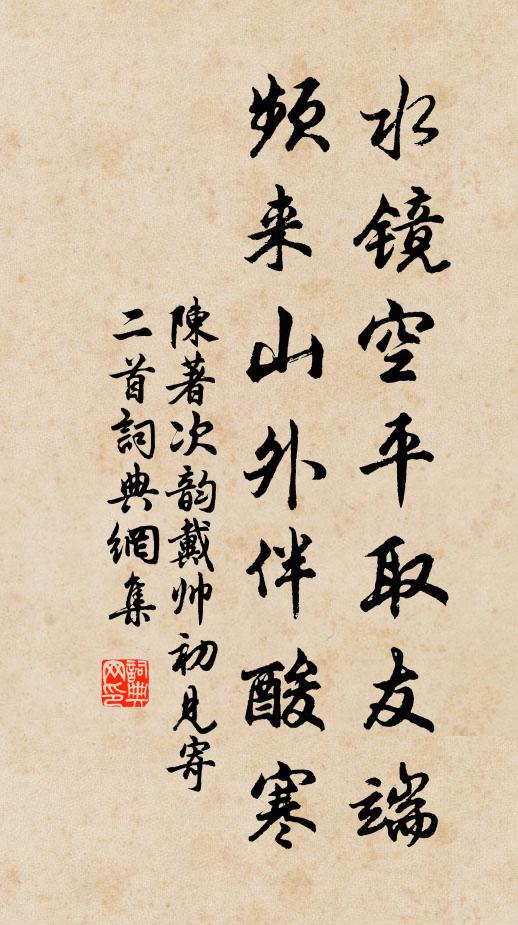 水镜空平取友端
频来山外伴酸寒
陳著次韵戴帅初見寄
二首詞典網集
詞典网印